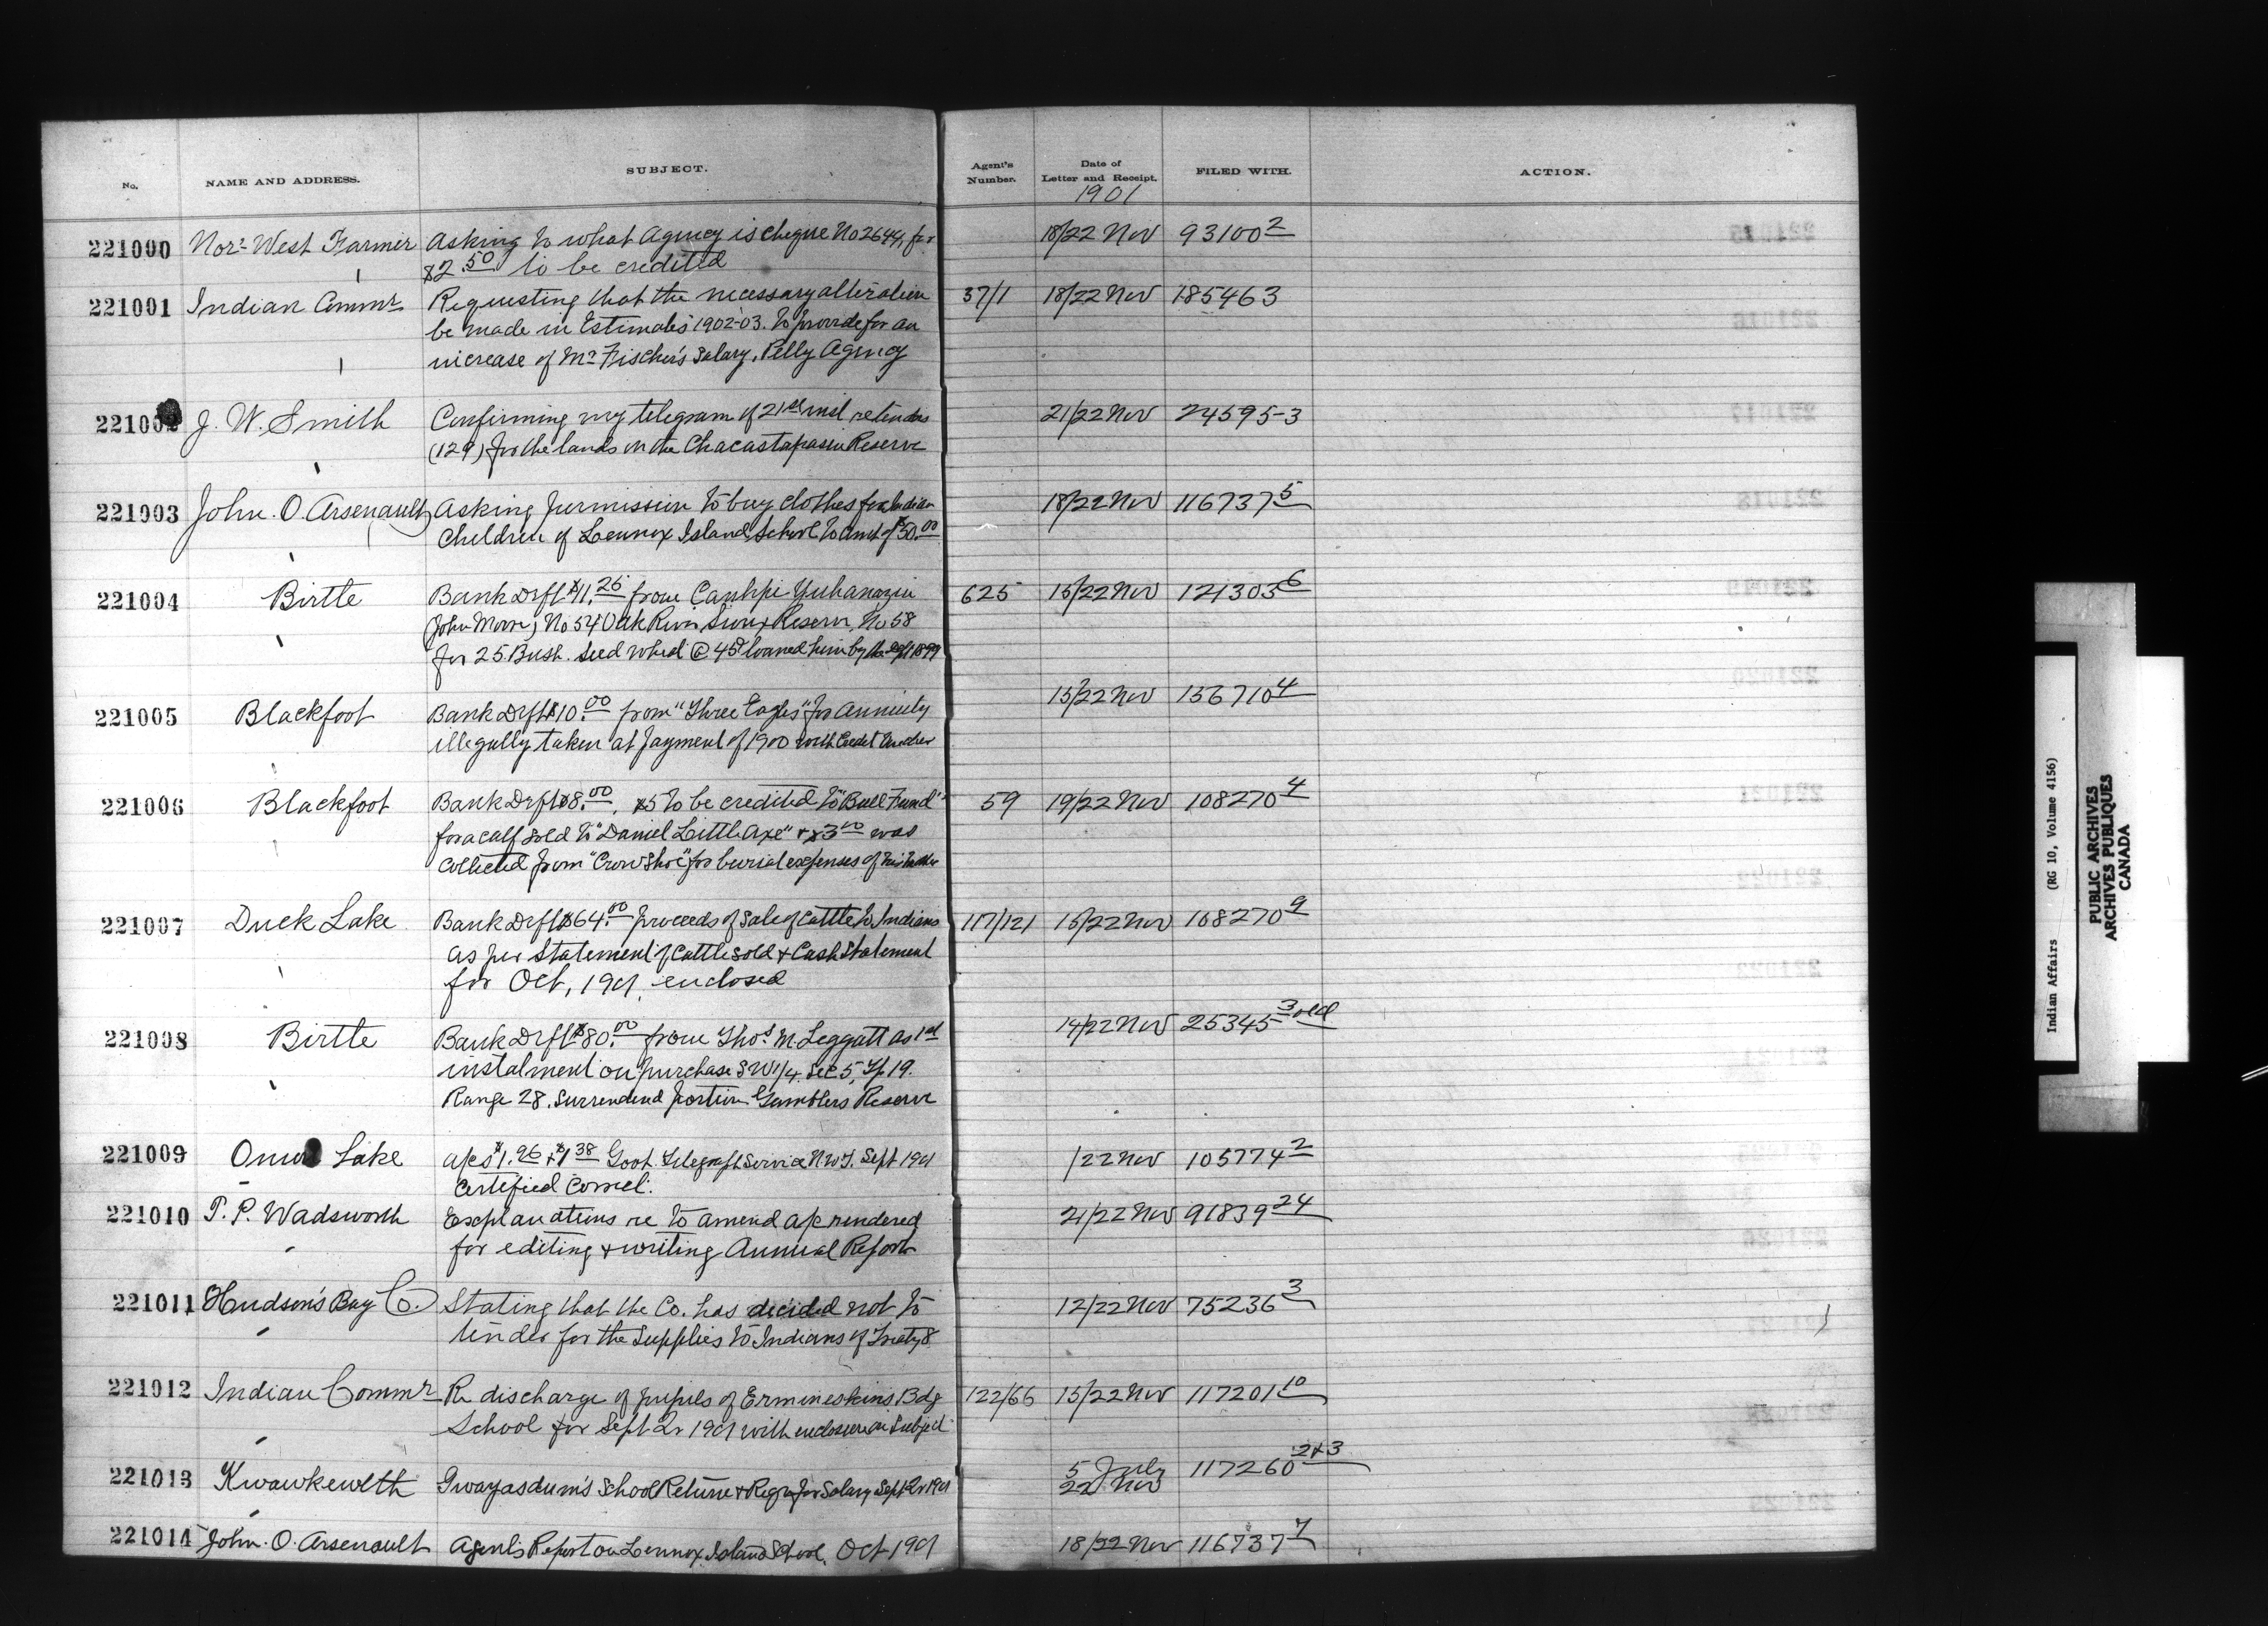 No. NAME AND ADDRESS. SUBJECT. Agent's Number. Date of Letter and Receipt. FILED WITH. ACTION.
1901
221000 Nor: West Farmer Asking to what Agency is cheque No 2644, for 18/22 Nov 93100 2
$2.50 to be credited
221001 Indian Commr Requesting that the necessary alteration 37/1 18/22 Nov 185463
be made in Estimates 1902-03. to provide for an
increase of Mr Fischer's Salary, Pelly Agency
221002 J. W. Smith Confirming my telegram of 21st inst re tenders 21/22 Nov 24595-3
(129) for the lands on the Chacastapasin Reserve
221003 John. O. Arsenault Asking permission to buy clothes for Indian 18/22 Nov 116737 5
Children of Lennox Island School to amt of $50.00
221004 Birtle Bank Drft $11.25 from Canhpi Yuhanazin 625 15/22 Nov 121303 6
(John Moon) No 54 Oak River Sioux Reserve, No 58
for 25 Bush. Seed wheat @ 45¢ loaned him by the 1899
221005 Blackfoot Bank Drft $10.00 from "Three Eagles" for annuity 15/22 Nov 156710 4
illegally taken at payment of 1900 with Credit
221006 Blackfoot Bank Drft $8.00, $5 to be credited to "Bull Fund" 59 19/22 Nov 108270 4
for a calf sold to "Daniel Little Axe" + $3.00 was
collected from "Crow Shoe" for burial expenses of his
221007 Duck Lake Bank Drft $64.00 proceeds of Sale of Cattle to Indians 117/121 16/22 Nov 108270 9
as per Statement of Cattle sold + Cash Statement
for Oct, 1901, enclosed
221008 Birtle Bank Drft $80.00 from Thos M. Leggatt as 1st 14/22 Nov 25345 3 old
instalment on purchase SW 1/4 Sec 5, Tp 19.
Range 28. Surrendered portion Gamblers Reserve
221009 Onion Lake a/cs $1.26 + $1.38 Govt. Telegraph Service N.W.T. Sept 1901 /22 Nov 105774 2
Certified Correct.
221010 T. P. Wadsworth Explanations re to amend a/c rendered 21/22 Nov 91839 24
for editing + writing Annual Report
221011 Hudson's Bay Co. Stating that the Co. has decided not to 12/22 Nov 75236 3
tender for the supplies to Indians of Treaty 8
221012 Indian Commr Re discharge of pupils of Ermineskins Bdg 122/66 15/22 Nov 117201 10
School for Sept Qr 1901 with enclosure on Subject
221013 Kwawkewlth Gwayasdum's School Return + Reqn for Salary Sept Qr 1901 5 July 117260 2+3
22 Nov
221014 John. O. Arsenault Agent's Report on Lennox Island School, Oct 1901 18/22 Nov 116737 7
Indian Affairs (RG 10, Volume 4156)
PUBLIC ARCHIVES
ARCHIVES PUBLIQUES
CANADA